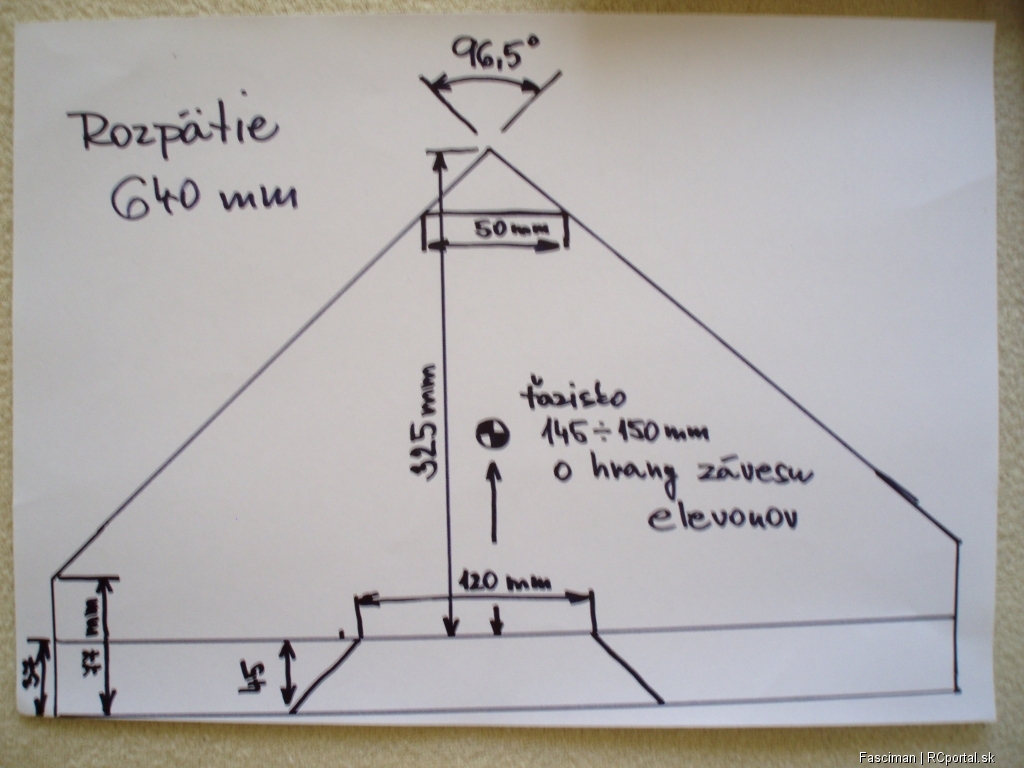 96,5°
Rozpätie
640 mm
50 mm
325 mm
ťazisko
145÷150 mm
o hrany závesu
elevonov
120 mm
77 mm
37
45
Fasciman | RCportal.sk